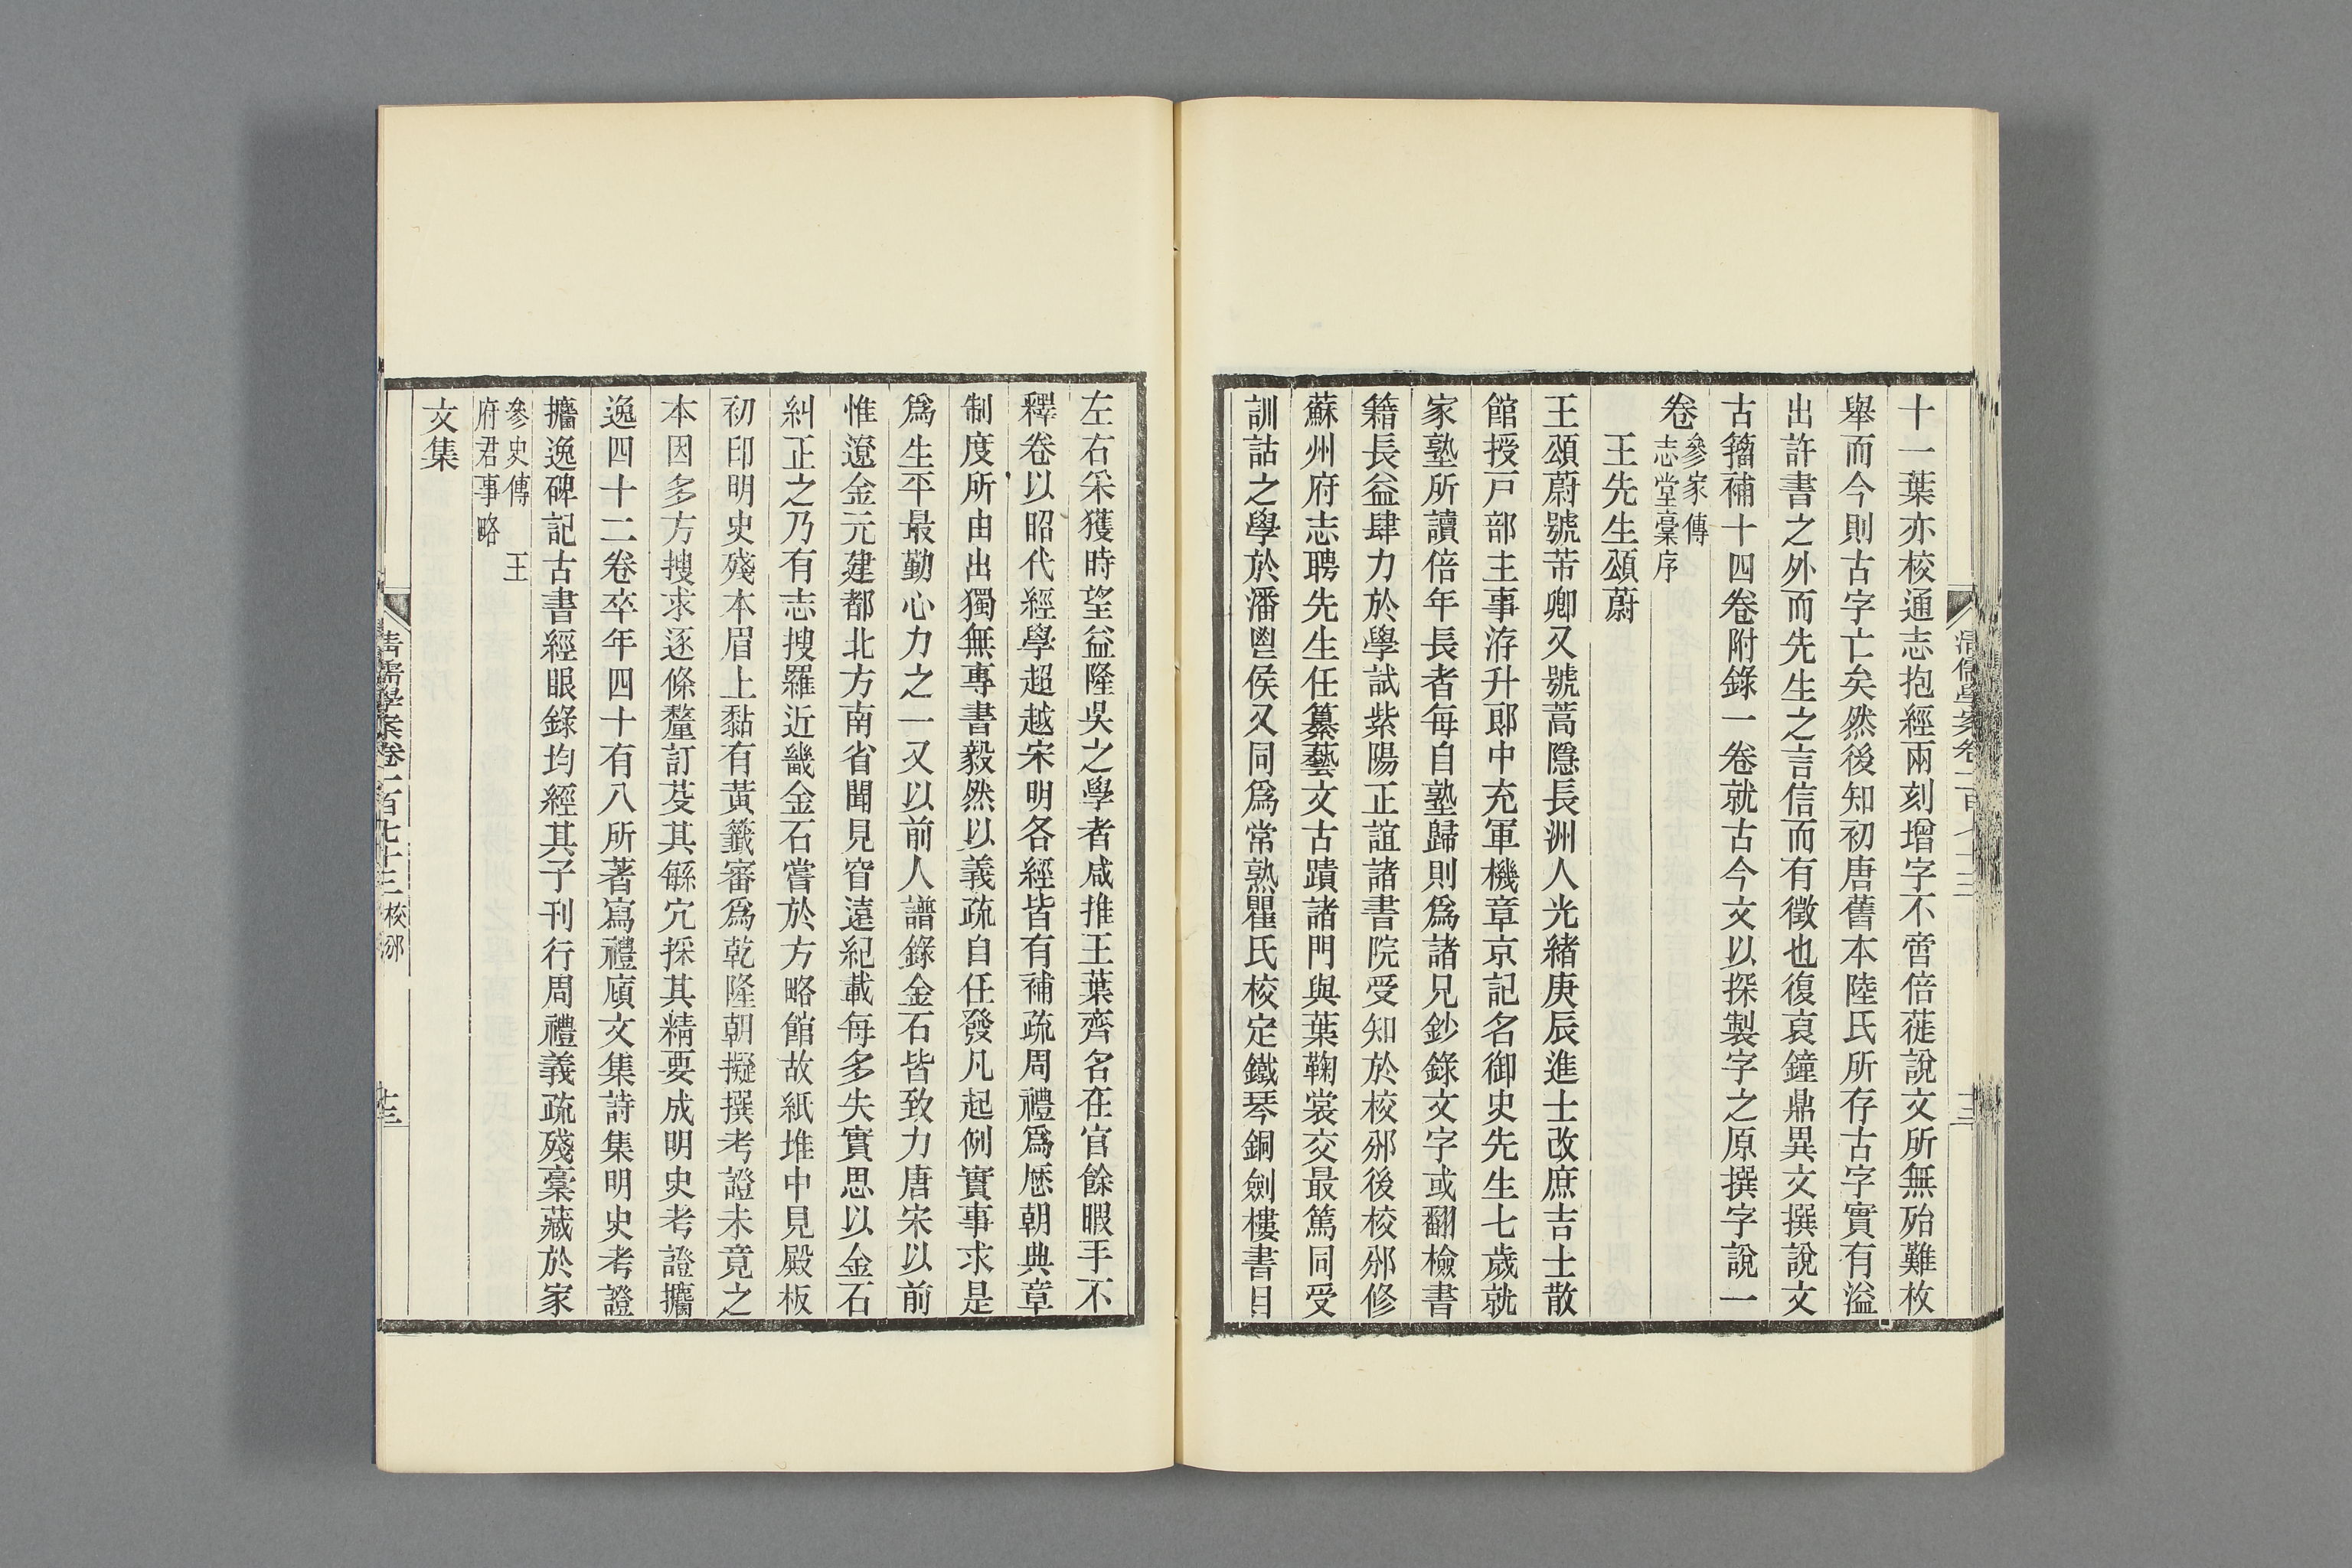 十一葉亦校通志抱經兩刻增字不啻倍蓰說文所無殆難枚
舉而今則古字亡矣然後知初唐舊本陸氏所存古字實有溢
出許書之外而先生之言信而有徵也復裒鐘鼎異文撰說文
古籒補十四卷附錄一卷就古今文以探製字之原撰字說一
卷參家傳
志堂稾序
王先生頌蔚
王頌蔚號芾卿又號蒿隱長洲人光緒庚辰進士改庶吉士散
館授戶部主事洊升郎中充軍機章京記名御史先生七歲就
家塾所讀倍年長者每自塾歸則爲諸兄鈔錄文字或翻檢書
籍長益肆力於學試紫陽正誼諸書院受知於校邠後校邠修
蘇州府志聘先生任纂藝文古蹟諸門與葉鞠裳交最篤同受
訓詁之學於潘鬯侯又同爲常熟瞿氏校定鐵琴銅劍樓書目
左右采獲時望益隆吳之學者咸推王葉齊名在官餘暇手不
釋卷以昭代經學超越宋明各經皆有補疏周禮爲歷朝典章
制度所由出獨無專書毅然以義疏自任發凡起例實事求是
爲生平最勤心力之一又以前人譜錄金石皆致力唐宋以前
惟遼金元建都北方南省聞見窅遠紀載每多失實思以金石
糾正之乃有志搜羅近畿金石嘗於方略館故紙堆中見殿板
初印明史殘本眉上黏有黃籤審爲乾隆朝擬撰考證未竟之
本因多方搜求逐條釐訂芟其緐宂採其精要成明史考證攟
逸四十二卷卒年四十有八所著寫禮廎文集詩集明史考證
攟逸碑記古書經眼錄均經其子刊行周禮義疏殘稾藏於家
參史傳　王
府君事略
文集
清儒學案卷一百七十三 校邠
十三